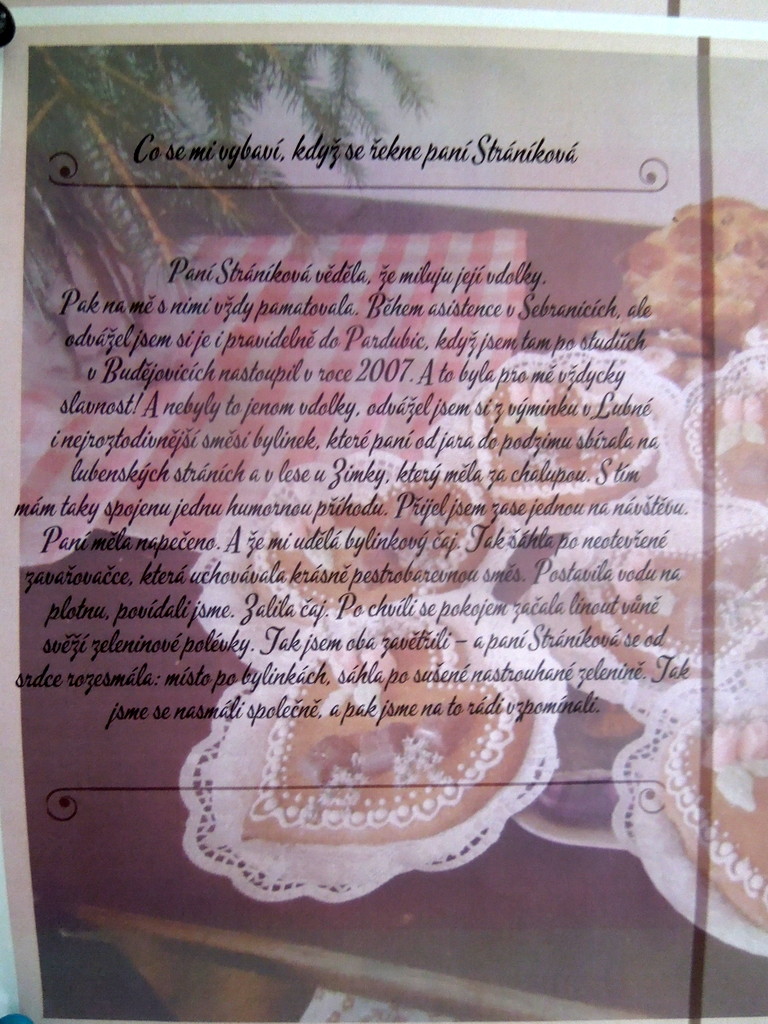 Co se mi vybaví, když se řekne paní Stráníková
Paní Stráníková věděla, že miluju její vdolky.
Pak na mě s nimi vždy pamatovala. Během asistence v Sebranicích, ale
odvážel jsem si je i pravidelně do Pardubic, když jsem tam po studiích
v Budějovicích nastoupil v roce 2007. A to byla pro mě vždycky
slavnost! A nebyly to jenom vdolky, odvážel jsem si z výminku v Lubné
i nejroztodivnější směsi bylinek, které paní od jara do podzimu sbírala na
lubenských stráních a v lese u Zimky, který měla za chalupou. S tím
mám taky spojenu jednu humornou příhodu. Přijel jsem zase jednou na návštěvu.
Paní měla napečeno. A že mi udělá bylinkový čaj. Tak sáhla po neotevřené
zavařovačce, která uchovávala krásně pestrobarevnou směs. Postavila vodu na
plotnu, povídali jsme. Zalila čaj. Po chvíli se pokojem začala linout vůně
svěží zeleninové polévky. Tak jsem oba zavětřili – a paní Stráníková se od
srdce rozesmála: místo po bylinkách, sáhla po sušené nastrouhané zelenině. Tak
jsme se nasmáli společně, a pak jsme na to rádi vzpomínali.